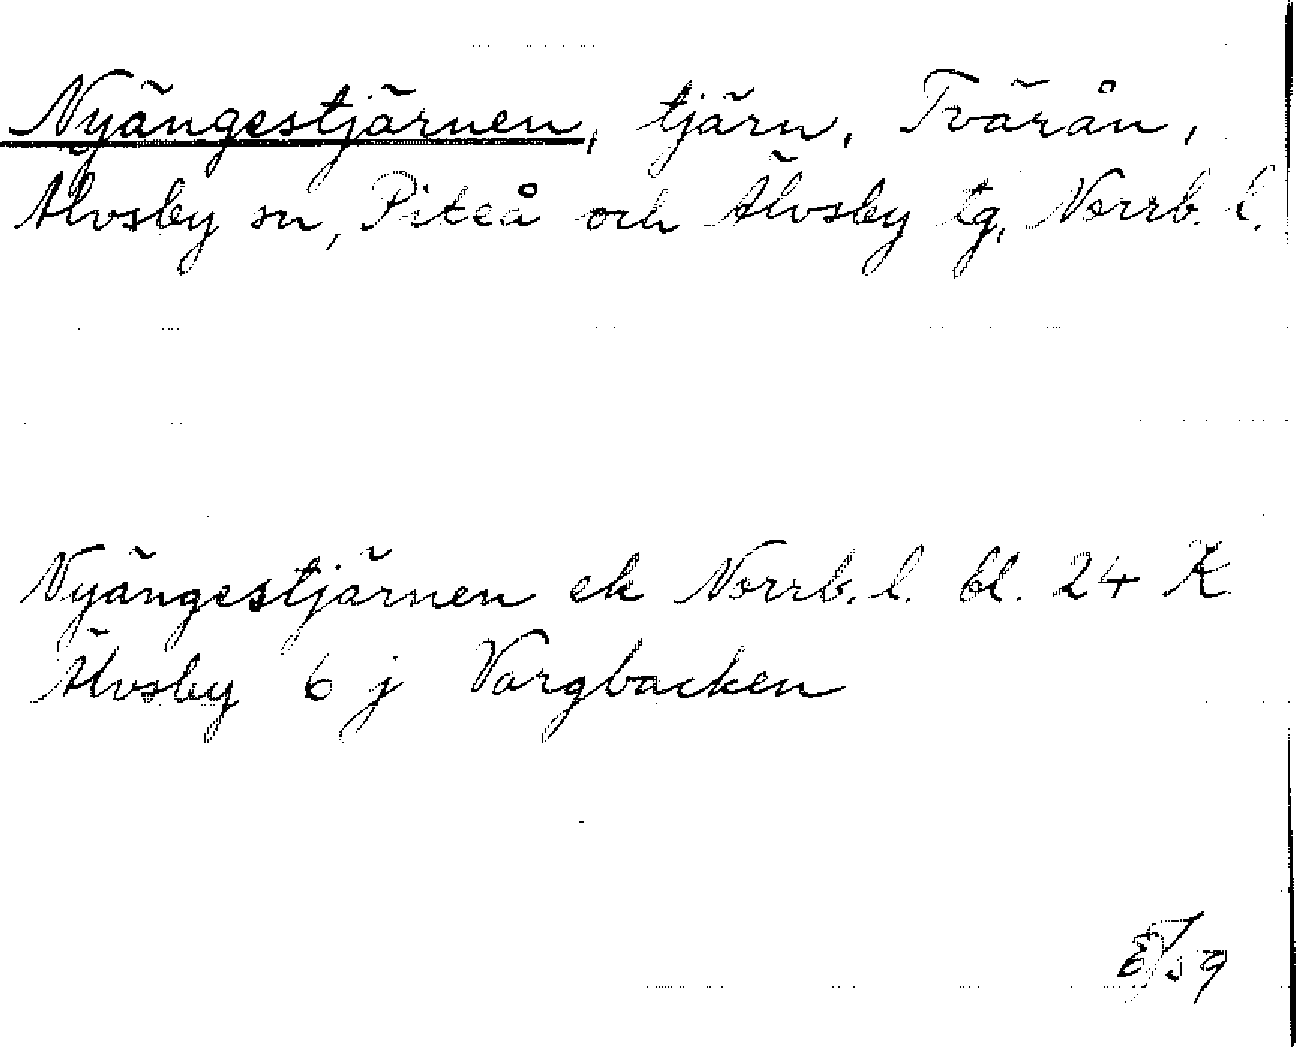 Nyängestjärnen, tjärn, Tvärån,
Älvsby sn, Piteå och Älvsby tg, Norrb. l.
Nyängestjärnen ek Norrb. l. bl. 24 K
Älvsby 6 j Vargbacken